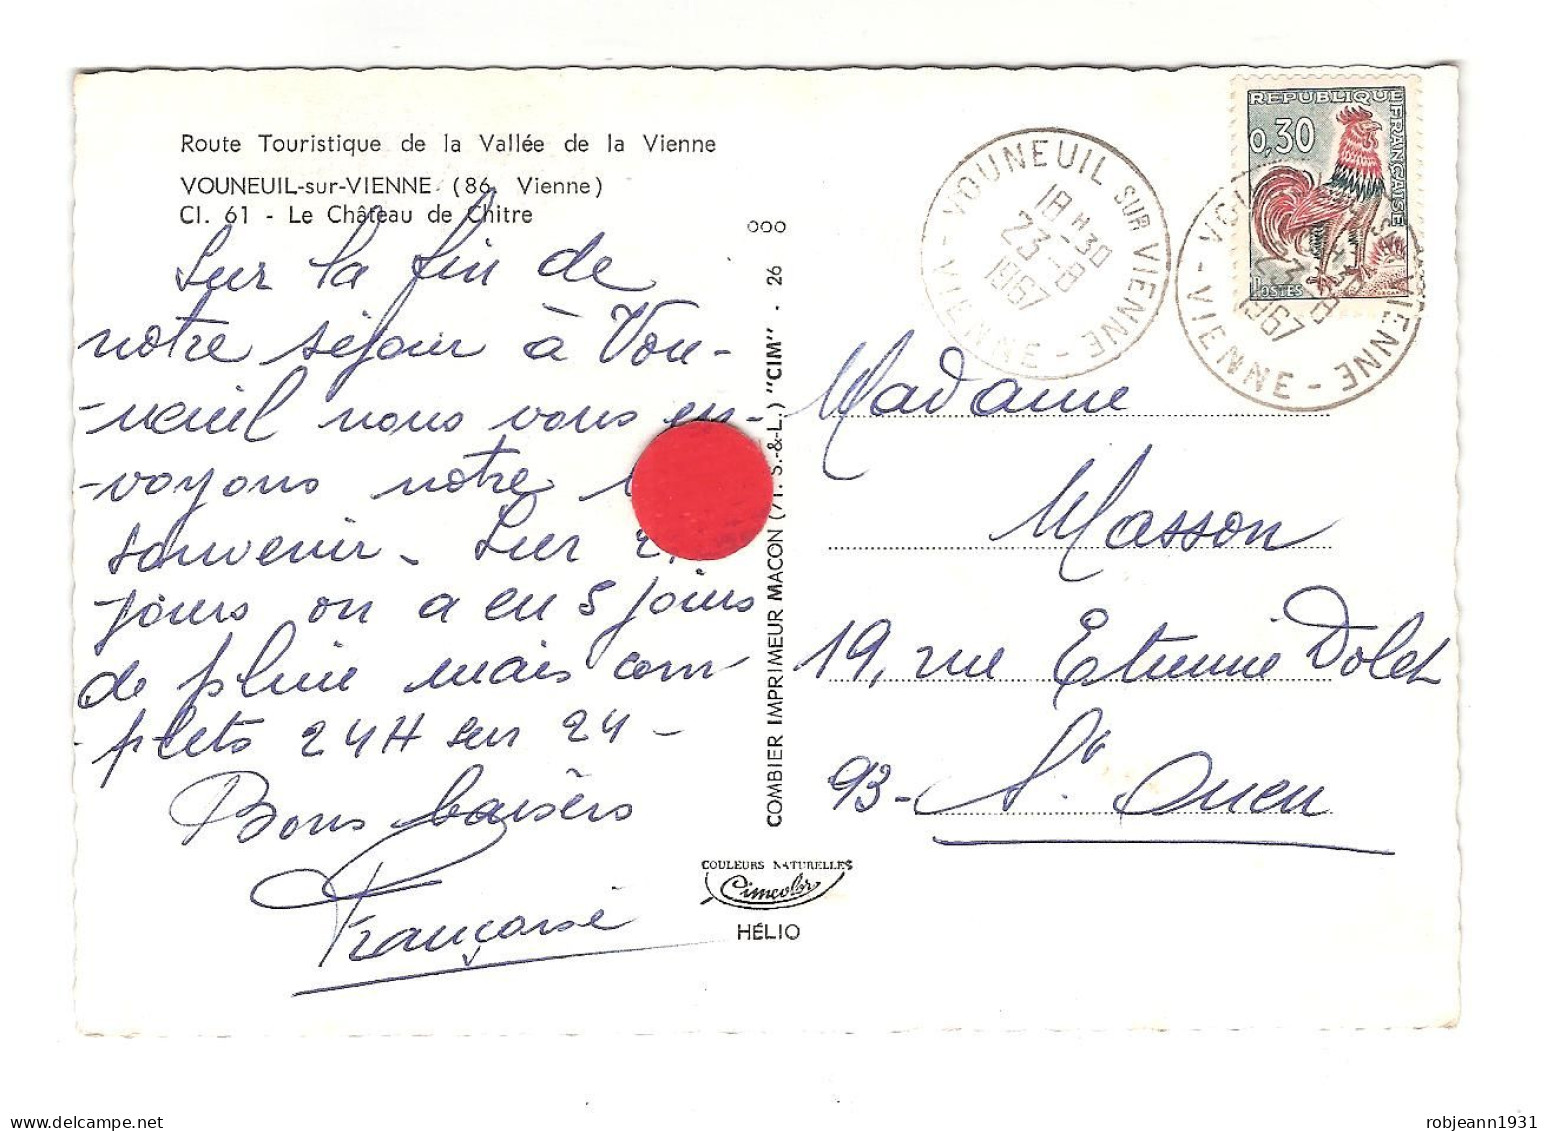 Route Touristique de la Vallée de la Vienne
VOUNEUIL-sur-VIENNE. (86, Vienne)
Cl. 61 - Le Château de Chitre
Sur la fin de
notre séjour à Vou-
-neuil nous vous en-
-voyons notre
souvenir - Sur
jours on a eu 5 jours
de pluie mais com
-plets 24H sur 24 -
Bons baisers
Françoise
ooo
COMBIER IMPRIMEUR MACON (71. S.-&-L.) "CIM" - 26
COULEURS NATURELLES
Cimcolor
HÉLIO
REPUBLIQUE FRANÇAISE
0,30
POSTES
VOUNEUIL SUR VIENNE
18H30
23-8
1967
- VIENNE -
- VIENNE -
1967
Madame
Masson
19, rue Etienne Dolet
93- St Ouen
robjeann1931